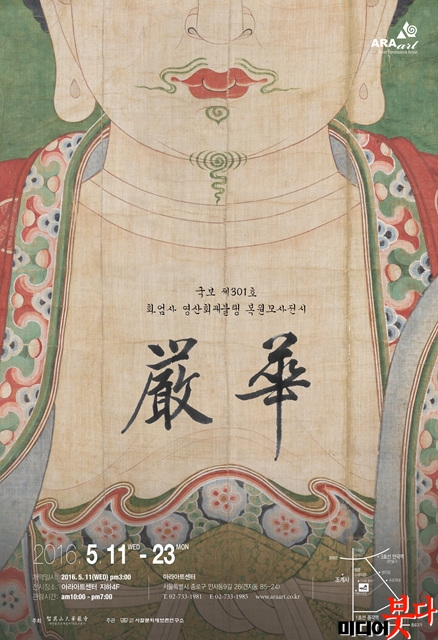 ARAart
국보 제301호
화엄사 영산회괘불탱 복원모사전시
嚴 華
2016, 5. 11 WED - 23 MON
개막일시: 2016. 5. 11(WED) pm3:00
전시장소: 아라아트센터 지하4F
관람시간: am10:00 - pm7:00
아라아트센터
서울특별시 종로구 인사동9길 26(견지동 85-24)
T. 02-733-1981 F. 02-733-1985 www.araart.co.kr
주최
주관
서울문화재보존연구소
조계사
미디어붓다